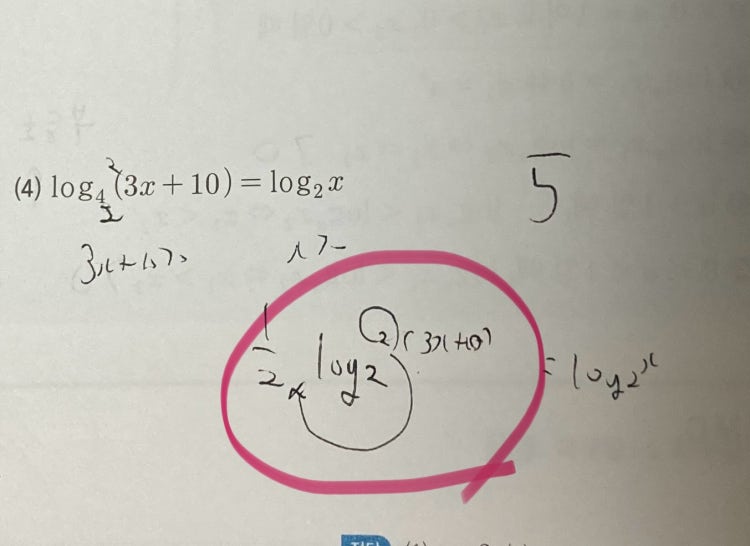 (4) log₄(3x + 10) = log₂x
2
2
5
3x+10>0
x>
1/2 × log2 (2)(3x+10) = log2 x